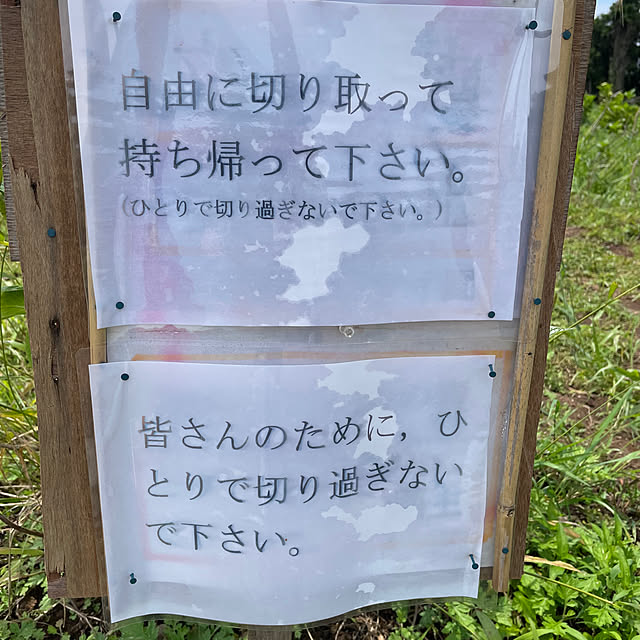 自由に切り取って
持ち帰って下さい。
(ひとりで切り過ぎないで下さい。)
皆さんのために，ひ
とりで切り過ぎない
で下さい。